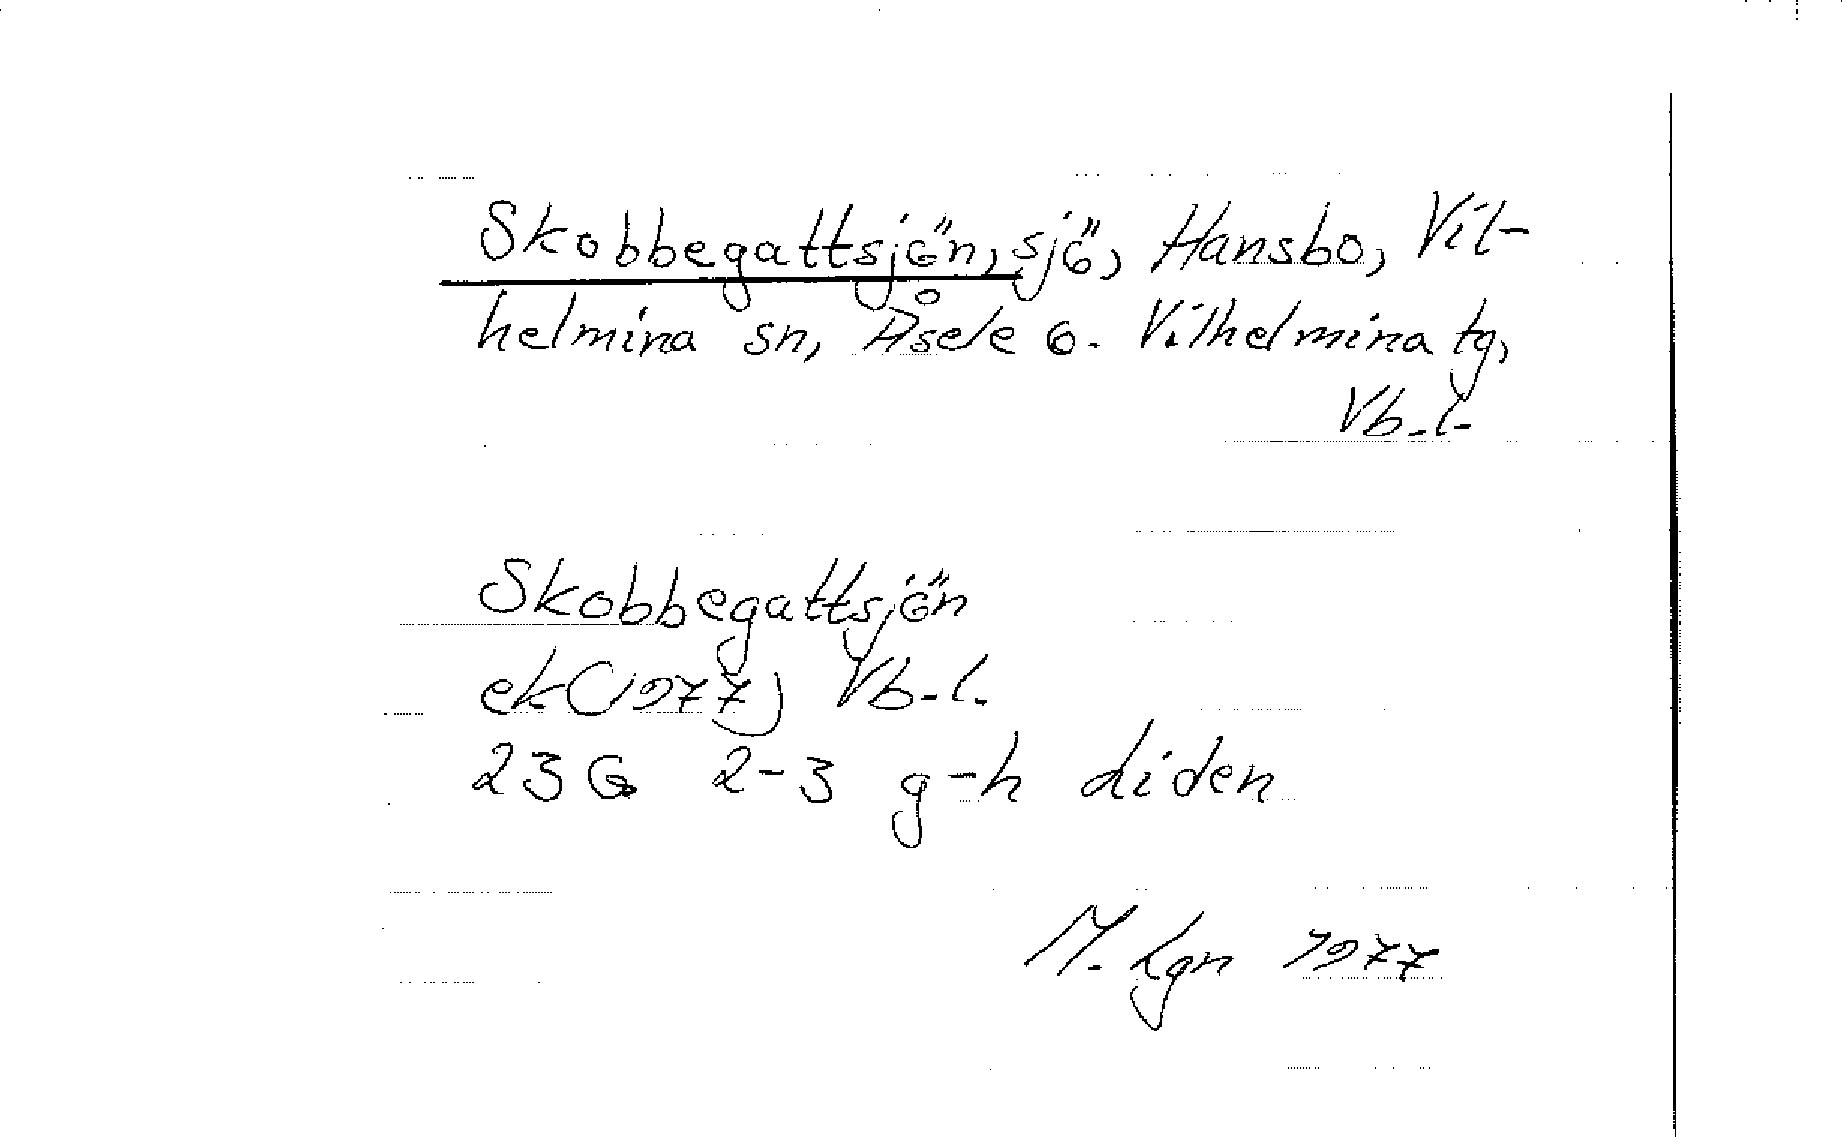 Skobbegattsjön, sjö, Hansbo, Vil-
helmina sn, Åsele o. Vilhelmina tg,
Vb.l.
Skobbegattsjön
ek (1977) Vb.l.
23 G 2-3 g-h Liden
M. Lgn 1977